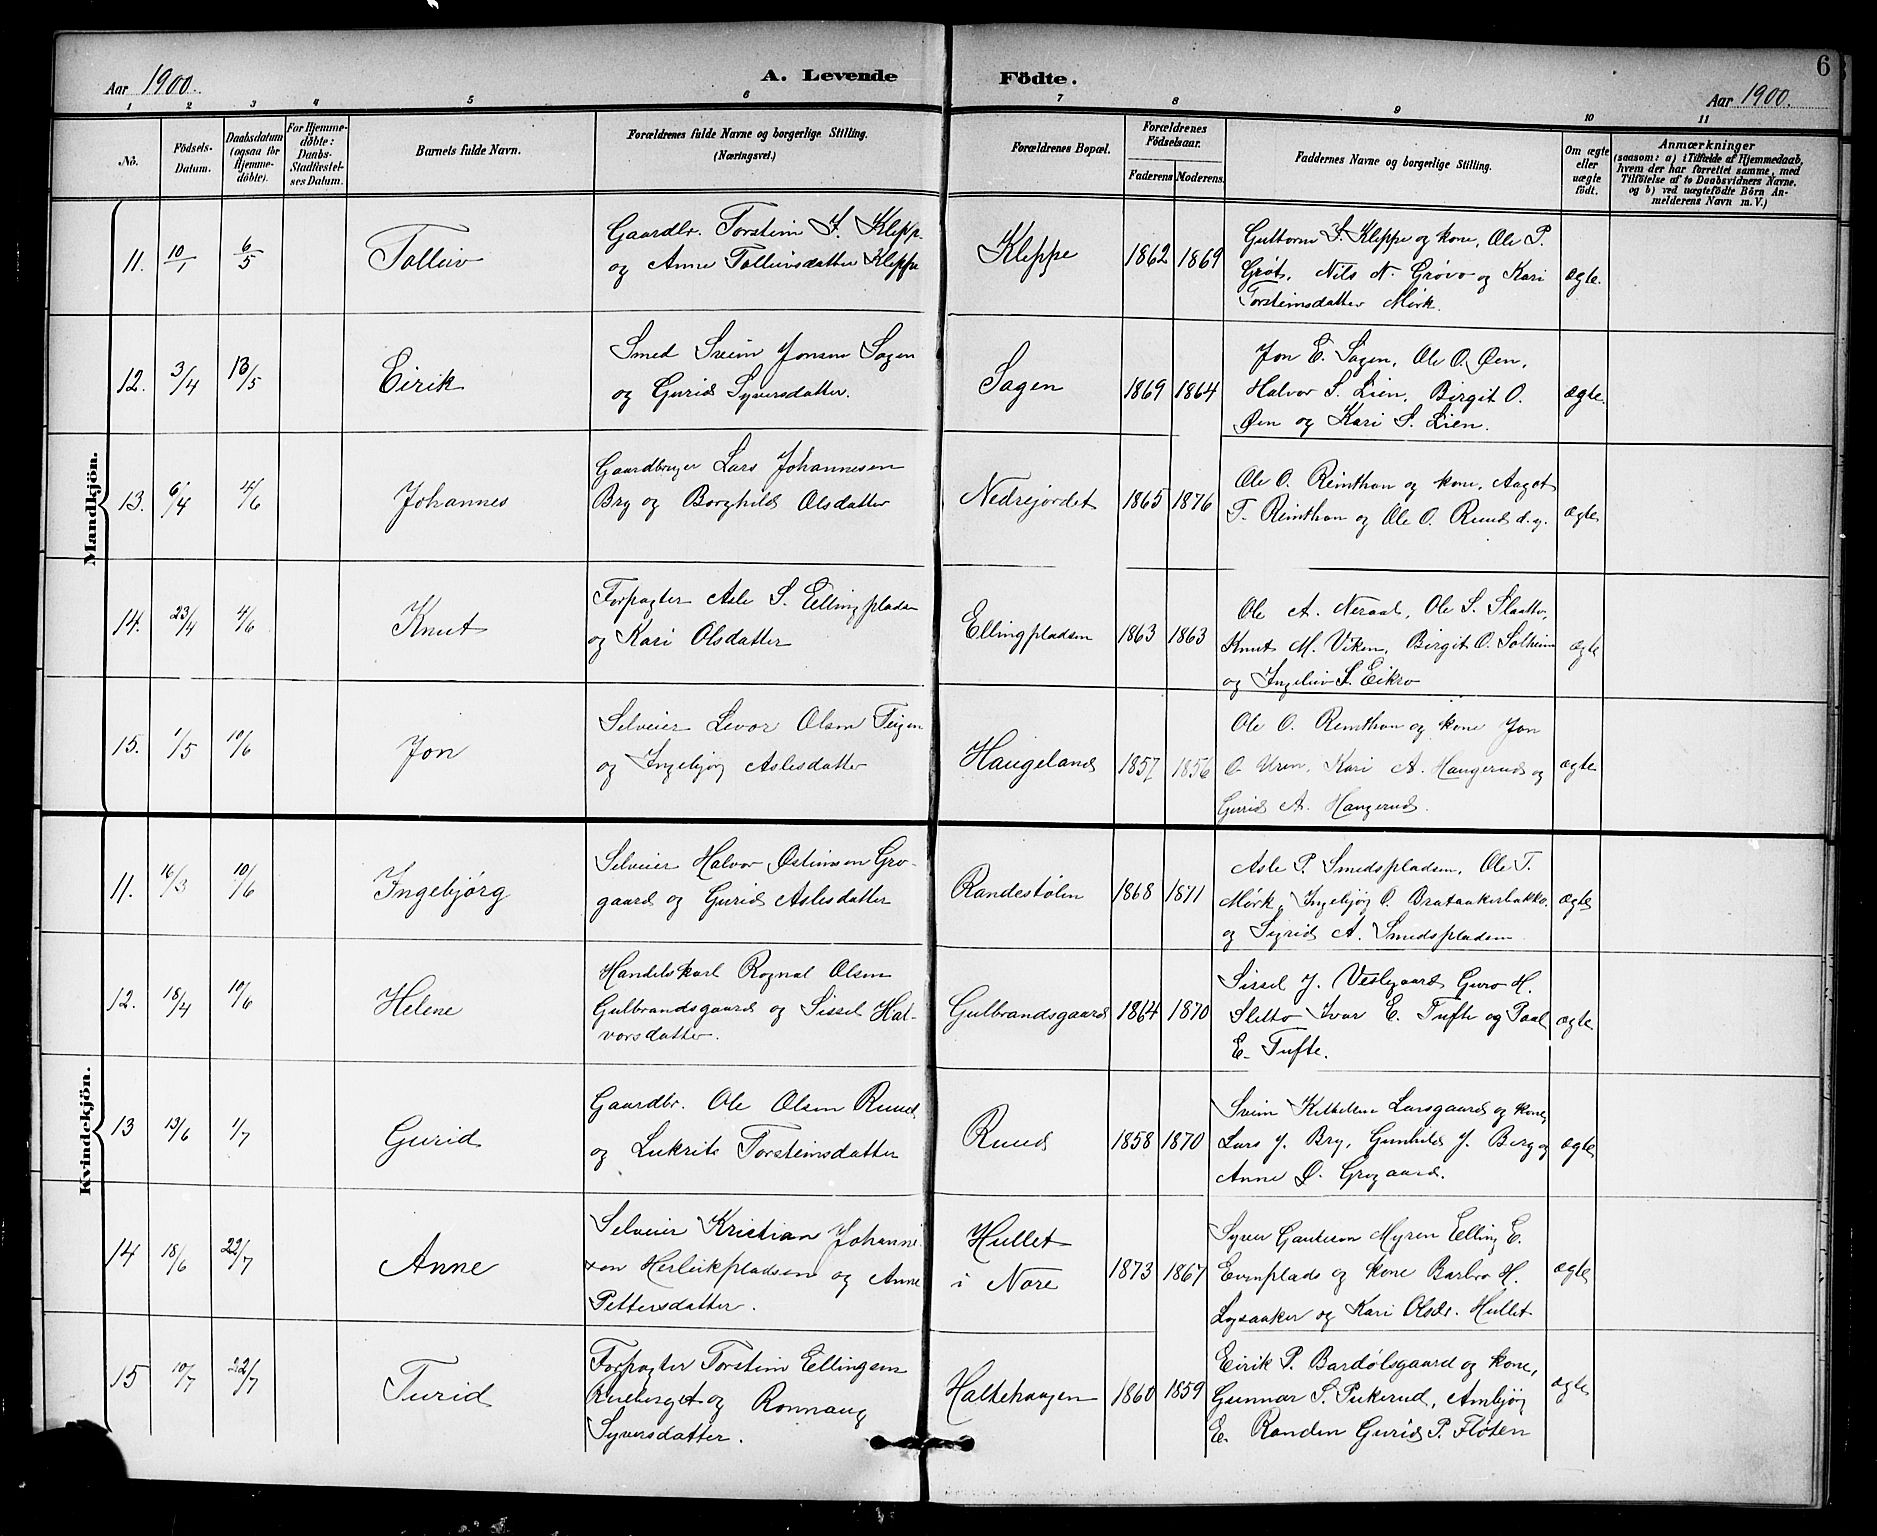 6
Aar 1900.
A. Levende
Födte.
Aar 1900.
1 2 3 4 5 6 7 8 9 10 11
No.
Födsels-
Datum.
Daabsdatum
(ogsaa for
Hjemme-
döbte).
For Hjemme-
döbte:
Daabs-
Stadfæstel-
ses Datum.
Barnets fulde Navn.
Forældrenes fulde Navne og borgerlige Stilling.
(Næringsvei.)
Forældrenes Bopæl.
Forældrenes
Födselsaar.
Faderens Moderens.
Faddernes Navne og borgerlige Stilling.
Om ægte
eller
uægte
födt.
Anmærkninger
(saasom: a) i Tilfælde af Hjemmedaab,
hvem der har forrettet samme, med
Tilföielse af to Daabsvidners Navne,
og b) ved uægtefödte Börn An-
melderens Navn m. V.)
Mandkjön.
11. 10/1 6/5
Tolleiv
Gaardbr. Torstein J. Klepp-
og Anne Tolleivsdatter Kleppe
Kleppe
1862 1869
Guttorm J. Kleppe og kone, Ole P.
Grøt, Nils N. Grøvo og Kari
Torsteinsdatter Mørk.
ægte.
12. 3/4 13/5
Eirik
Smed Svein Jonsen Sagen
og Gurid Syversdatter.
Sagen
1869 1864
Jon E. Sagen, Ole O. Øen,
Halvor S. Lien, Birgit O.
Øen og Kari S. Lien.
ægte.
13. 6/4 4/6
Johannes
Gaardbruger Lars Johannesen
Bry og Borghild Olsdatter
Nedrejordet
1865 1876
Ole O. Reinthon og kone, Aagot
T. Reinthon og Ole O. Ruud d. y.
ægte
14. 23/4 4/6
Knut
Forpagter Asle S. Ellingpladsn
og Kari Olsdatter
Ellingpladsen
1863 1863
Ole A. Neraal, Ole S. Slaatto,
Knut M. Viken, Birgit O. Solheim
og Ingeleiv S. Eikro
ægte
15. 1/5 10/6
Jon
Selveier Levor Olsen Teigen
og Ingebjørg Aslesdatter
Haugeland
1857 1856
Ole O. Reinthon og kone Jon
O. Uren, Kari A. Haugerud og
Gurid A. Haugerud.
ægte
Kvindekjön.
11. 16/3 10/6
Ingebjørg
Selveier Halvor Østensen Gro-
gaard og Gurid Aslesdatter
Randestølen
1868 1871
Asle P. Smedspladsen, Ole T.
Mørk, Ingebjørg O. Brataakerbakko
og Sigrid A. Smedspladsen
ægte
12. 18/4 10/6
Helene
Handelskarl Rognal Olsen
Gulbrandsgaard og Sissel Hal-
vorsdatter.
Gulbrandsgaard
1864 1870
Sissel J. Veslegaard Guro H.
Sletto Ivar E. Tufte og Paal
E. Tufte.
ægte
13 13/6 1/7
Gurid
Gaardbr. Ole Olsen Ruud
og Lukrits Torsteinsdatter
Ruud
1858 1870
Svein Larsgaard og kone,
Lars J. Bry, Gunhild J. Berg og
Anne Grogaard.
ægte
14 18/6 22/7
Anne
Selveier Kristian Johanne-
son Herleikpladsen og Anne
Pettersdatter.
Hullet
i Nore
1873 1867
Syver Gauteson Myren Elling E.
Evenplads og kone Barbro H.
Lysaaker og Kari Olsdr. Hullet
ægte
15 10/7 22/7
Turid
Forpagter Torstein Ellingsen
og Ronnaug
Syversdatter.
Haltehaugen
1860 1859
Eirik P. Bardølsgaard og kone,
Gunnar S. Pukerud, Ambjør
E. Randen Gurid P. Fløten
ægte